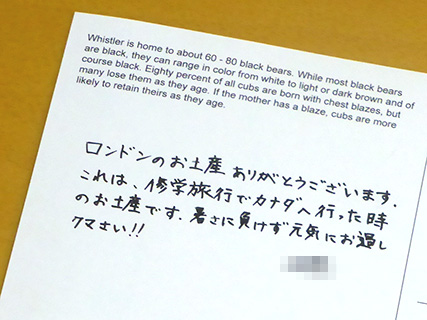 Whistler is home to about 60 - 80 black bears. While most black bears
are black, they can range in color from white to light or dark brown and of
course black. Eighty percent of all cubs are born with chest blazes, but
many lose them as they age. If the mother has a blaze, cubs are more
likely to retain theirs as they age.
ロンドンのお土産ありがとうございます.
これは、修学旅行でカナダへ行った時
のお土産です.暑さに負けず元気にお過し
クマさい!!